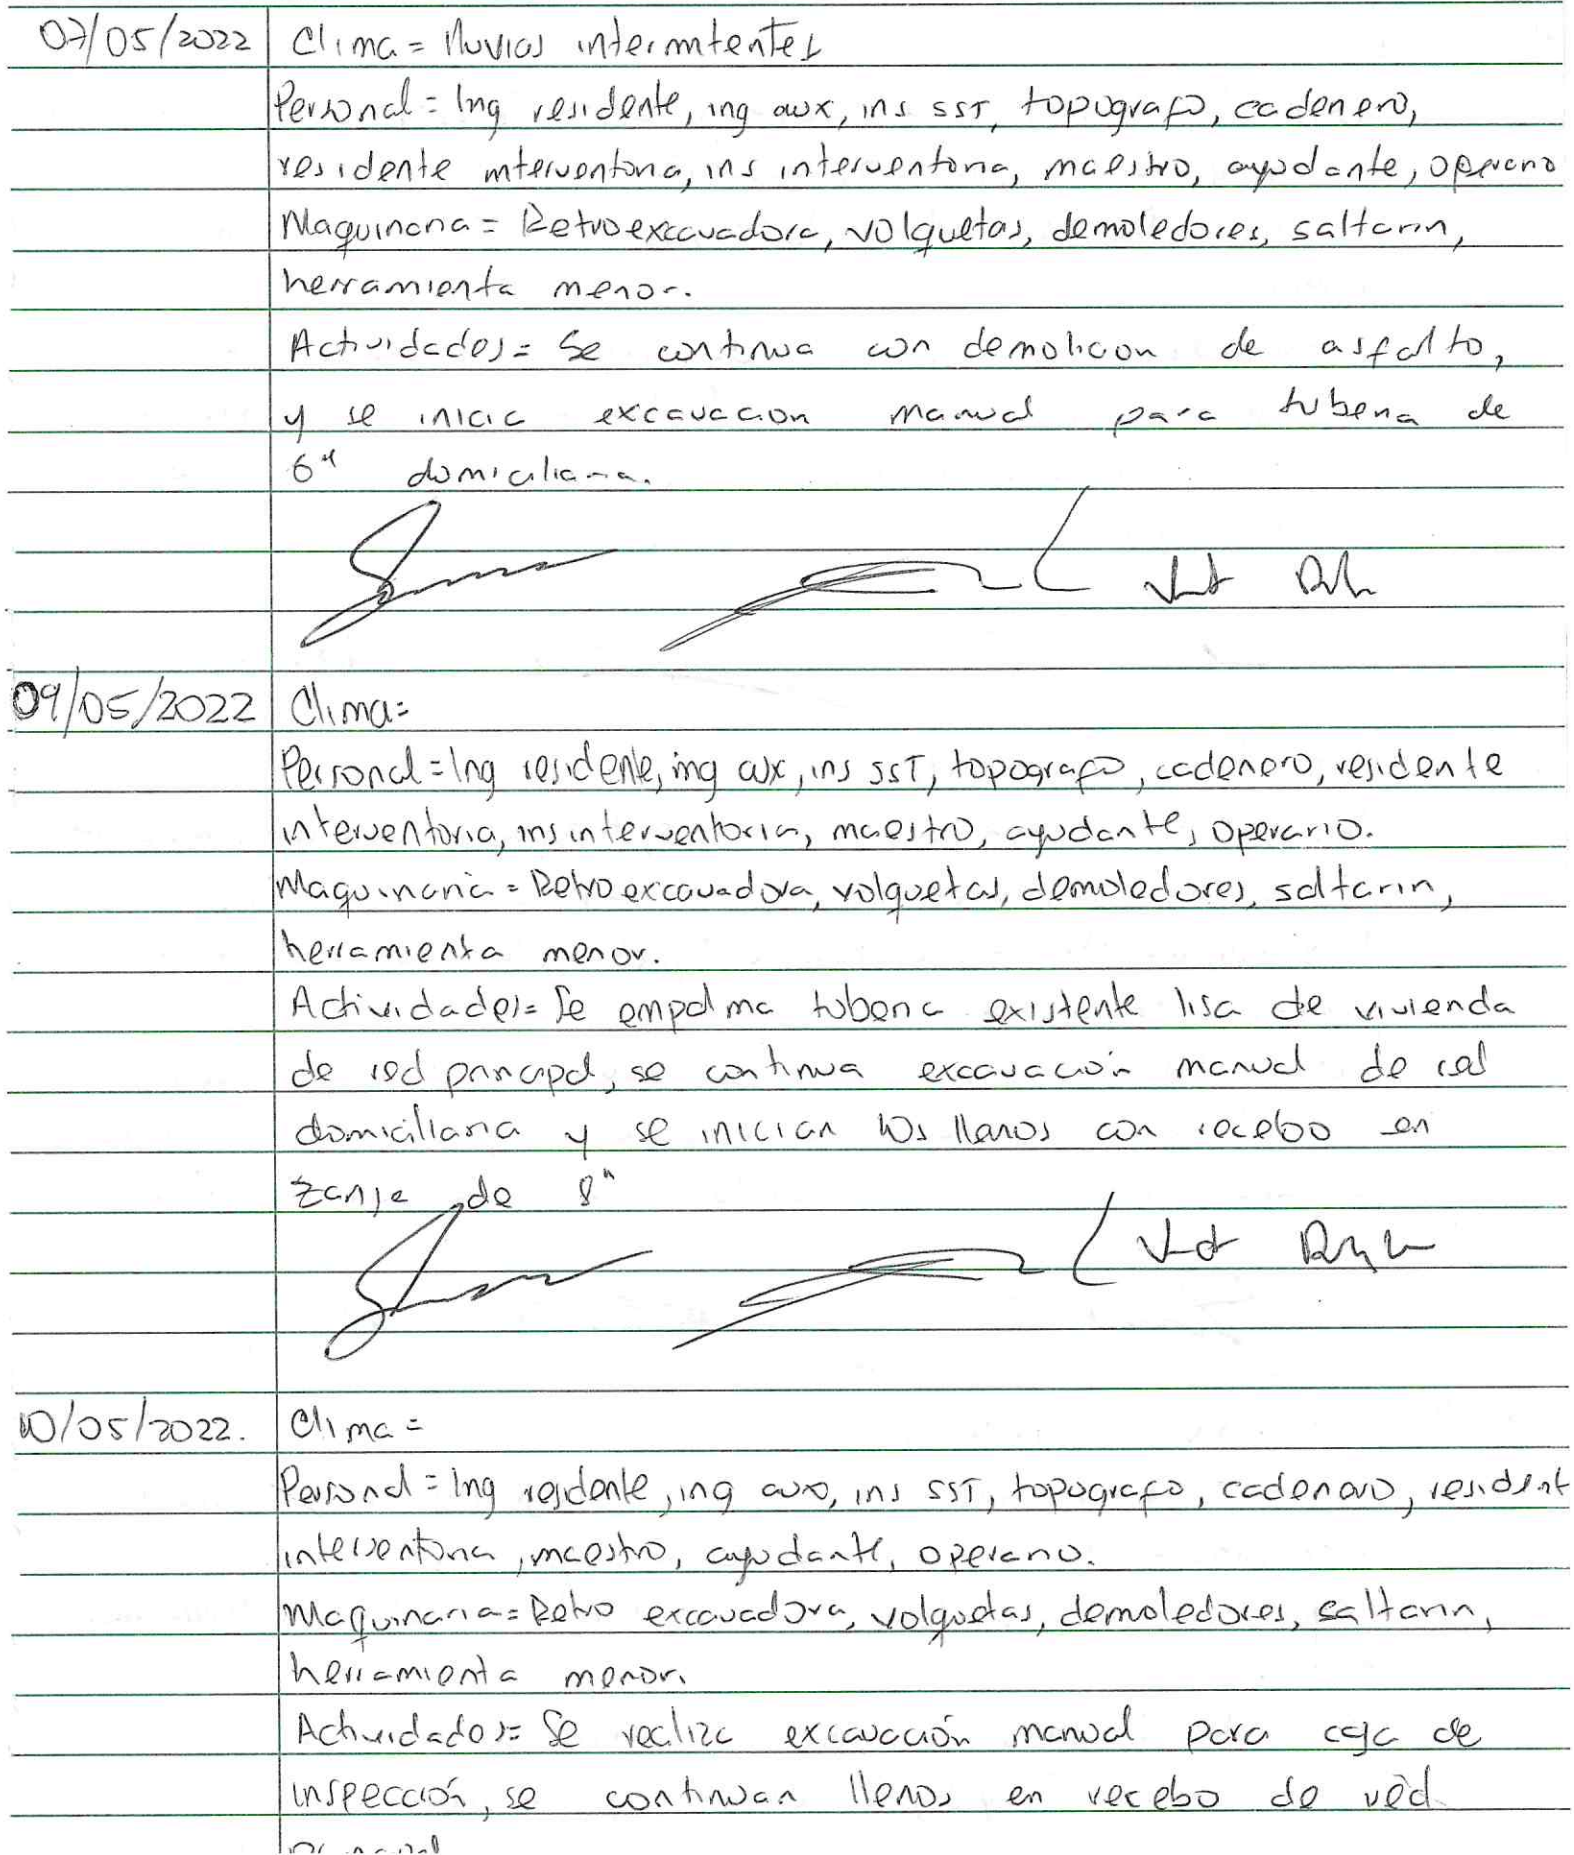 07/05/2022 Clima = lluvias intermitentes
Personal = Ing residente, ing aux, ins SST, topografo, cadenero,
residente interventoria, ins interventoria, maestro, ayudante, operario
Maquinaria = Retroexcavadora, volquetas, demoledores, saltarin,
herramienta menor.
Actividades = Se continua con demolicion de asfalto,
y se inicia excavacion manual para tuberia de
6" domiciliaria.
09/05/2022 Clima =
Personal = Ing residente, ing aux, ins SST, topografo, cadenero, residente
interventoria, ins interventoria, maestro, ayudante, operario.
Maquinaria = Retroexcavadora, volquetas, demoledores, saltarin,
herramienta menor.
Actividades = Se empalma tuberia existente lisa de vivienda
de red principal, se continua excavación manual de red
domiciliaria y se inician los llenos con recebo en
zanja de 8"
10/05/2022. Clima =
Personal = Ing residente, ing aux, ins SST, topografo, cadenero, resident
interventoria, maestro, ayudante, operario.
Maquinaria = Retro excavadora, volquetas, demoledores, saltarin,
herramienta menor.
Actividades = Se realiza excavación manual para caja de
inspección, se continuan llenos en recebo de red